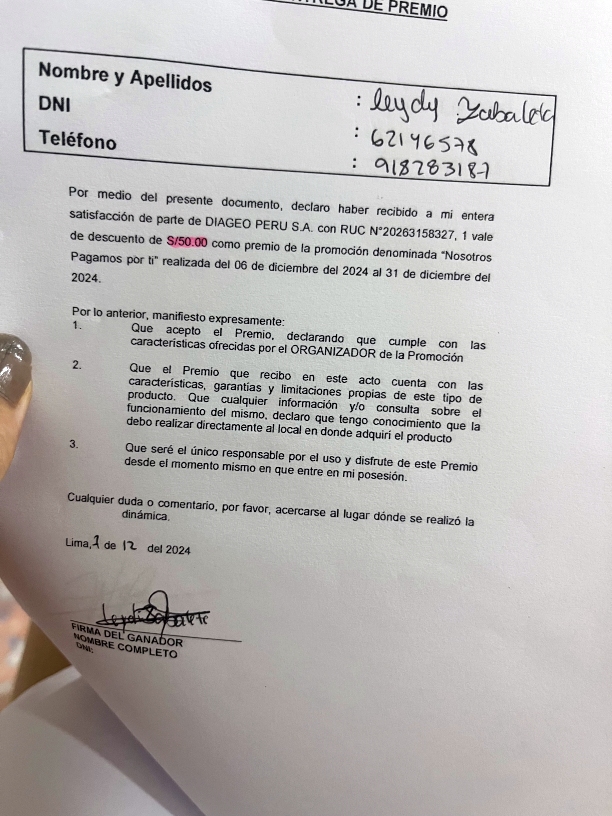 DE PREMIO
Nombre y Apellidos : leydy Zabaleta
DNI : 62146578
Teléfono : 918283187
Por medio del presente documento, declaro haber recibido a mi entera
satisfacción de parte de DIAGEO PERU S.A. con RUC N°20263158327, 1 vale
de descuento de S/50.00 como premio de la promoción denominada “Nosotros
Pagamos por ti” realizada del 06 de diciembre del 2024 al 31 de diciembre del
2024.
Por lo anterior, manifiesto expresamente:
1. Que acepto el Premio, declarando que cumple con las
características ofrecidas por el ORGANIZADOR de la Promoción
2. Que el Premio que recibo en este acto cuenta con las
características, garantías y limitaciones propias de este tipo de
producto. Que cualquier información y/o consulta sobre el
funcionamiento del mismo, declaro que tengo conocimiento que la
debo realizar directamente al local en donde adquirí el producto
3. Que seré el único responsable por el uso y disfrute de este Premio
desde el momento mismo en que entre en mi posesión.
Cualquier duda o comentario, por favor, acercarse al lugar dónde se realizó la
dinámica.
Lima, de 12 del 2024
FIRMA DEL GANADOR
NOMBRE COMPLETO
DNI: